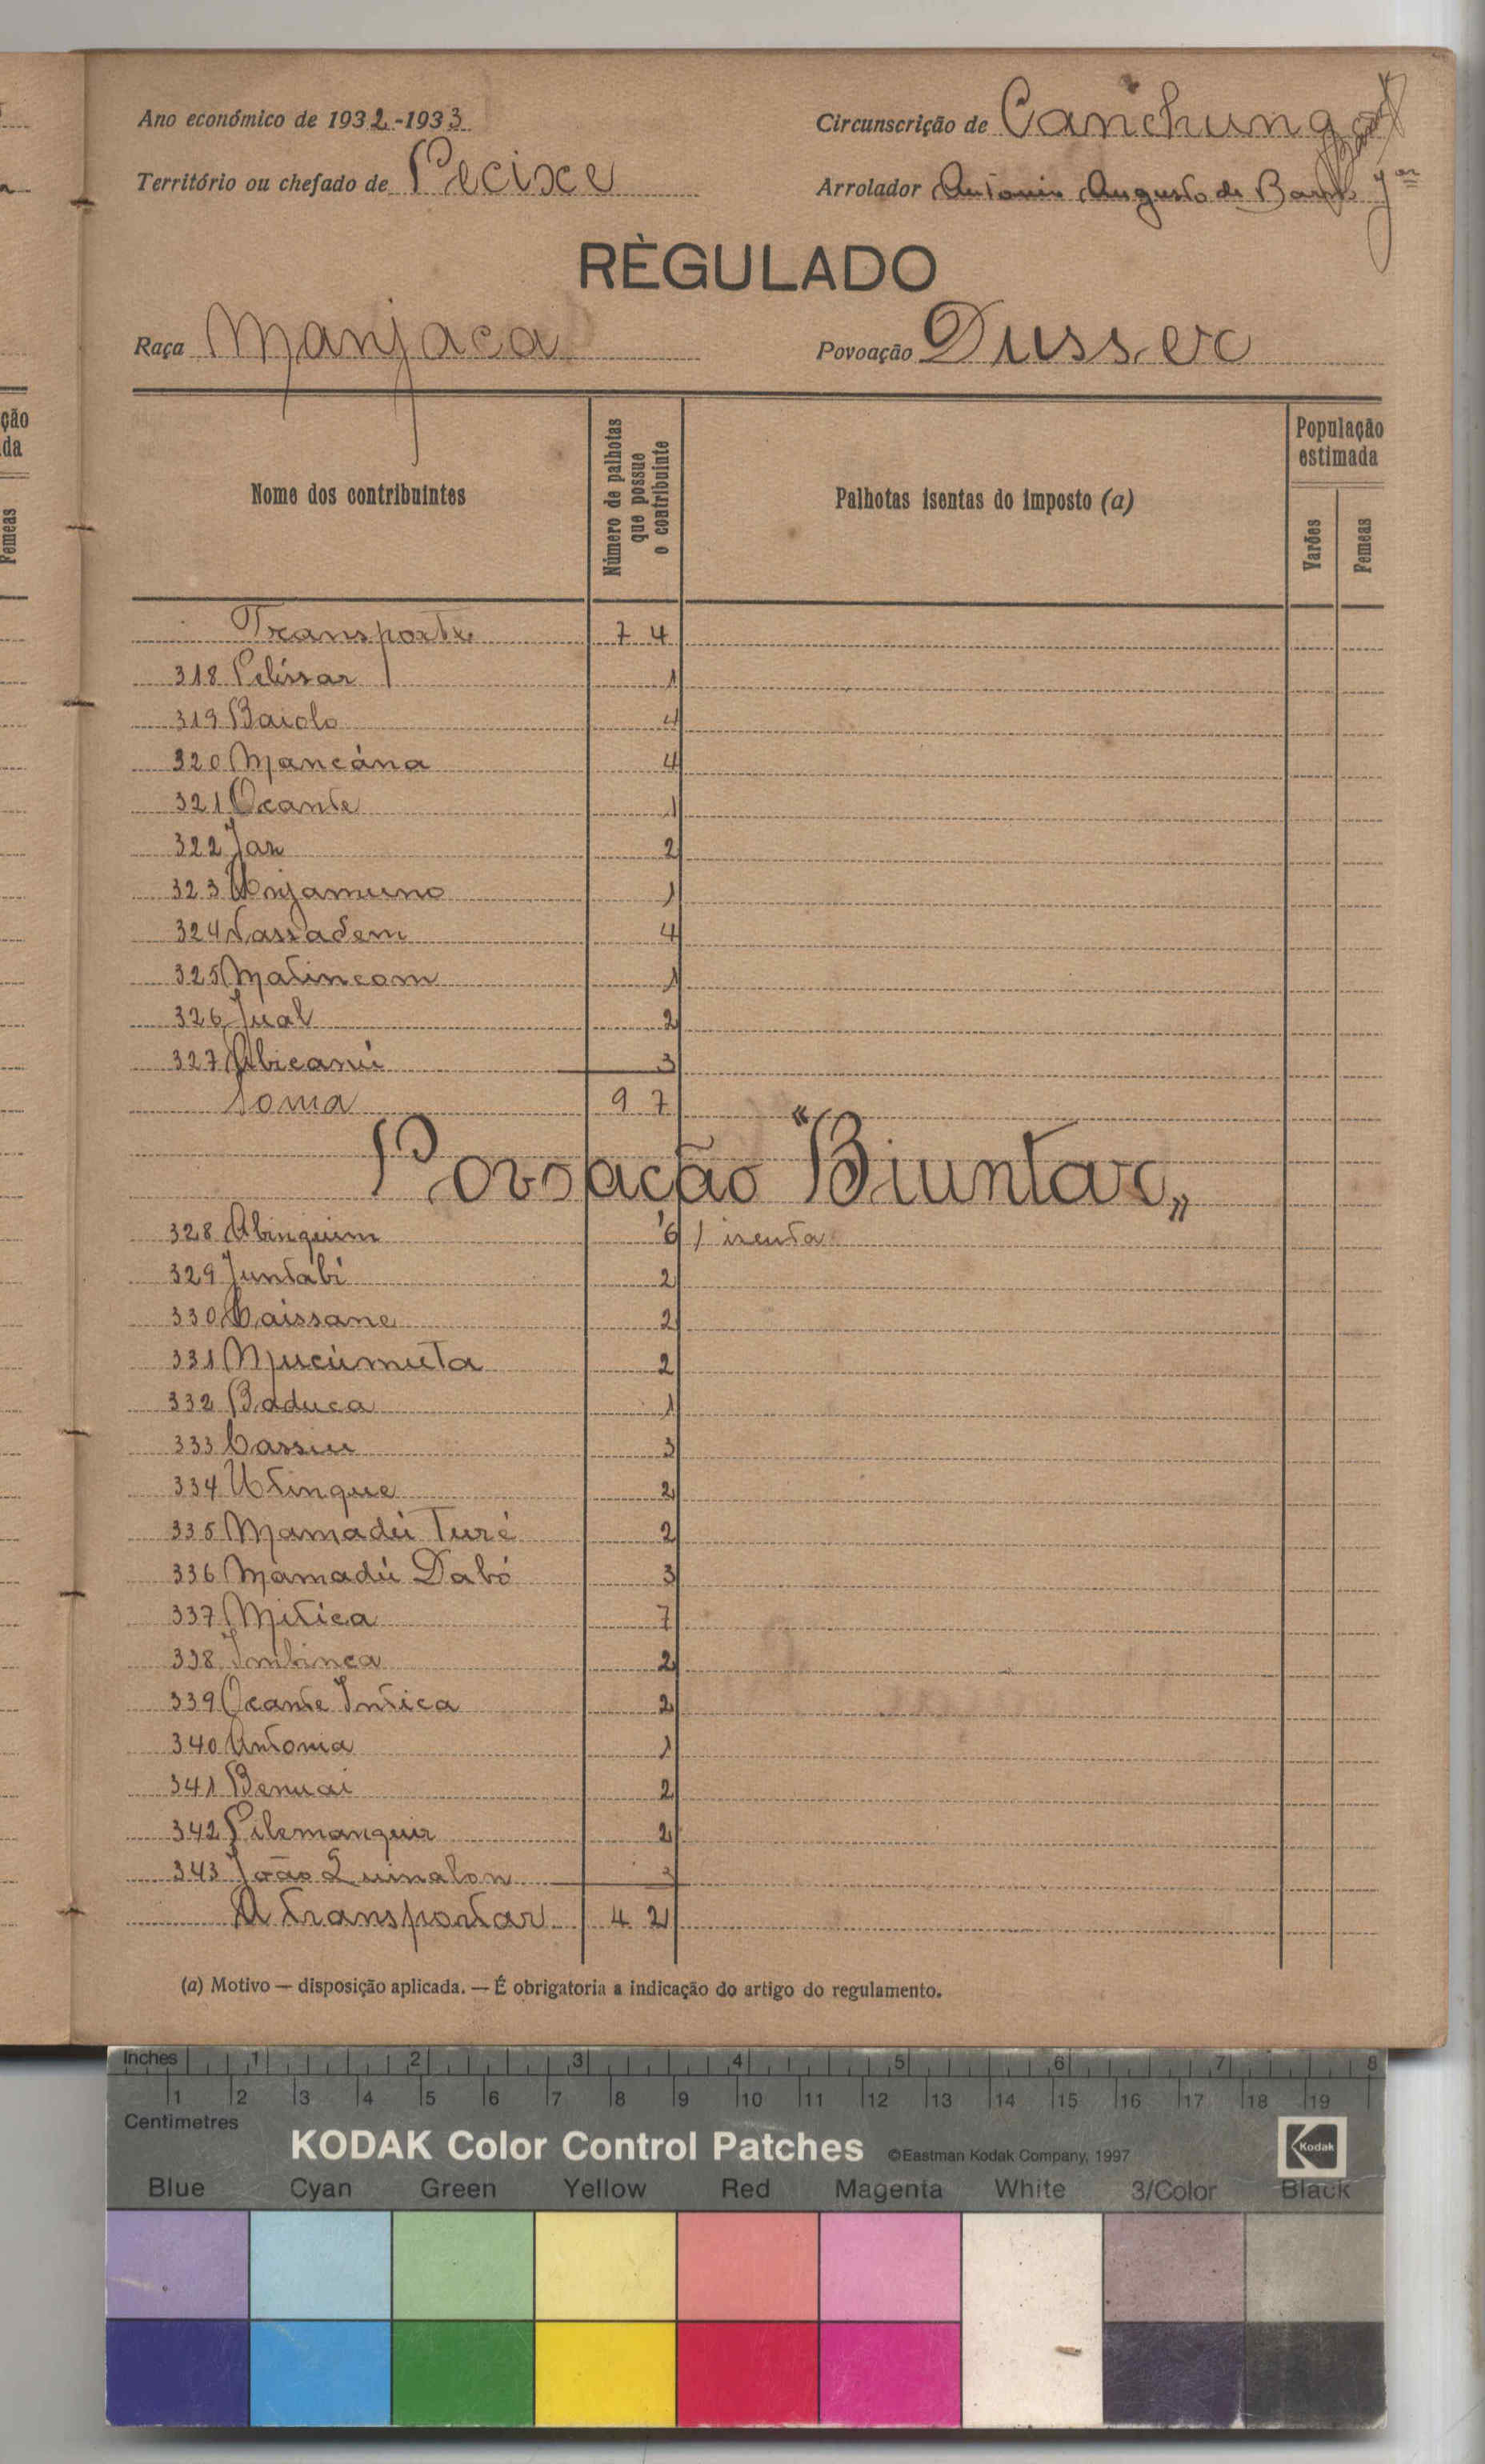 Ano económico de 1932-1933
Circunscrição de Canchungo
Território ou chefado de Pecixe
Arrolador Antonio Augusto de Barros Jor
RÈGULADO
Raça Manjaca
Povoação Dusser
ção
da
Femeas
Nome dos contribuintes
Número de palhotas
que possue
o contribuinte
Palhotas isentas do imposto (a)
População
estimada
Varões
Femeas
Transporte 7 4
318 Pelissar 1
319 Baiolo 4
320 Mancána 4
321 Ocante 1
322 Jar 2
323 Unjamuno 1
324 Nassadem 4
325 Matincom 1
326 Jual 2
327 Abicanú 3
Soma 9 7
Povoação "Biuntar"
328 Abinquim 6 1 isenta
329 Juntabi 2
330 Caissane 2
331 Mucúmuta 2
332 Baduca 1
333 Cassiu 3
334 Utinque 2
335 Mamadú Turé 2
336 Mamadú Dabó 3
337 Mitica 7
338 Imbinca 2
339 Ocante Intica 2
340 Antonia 1
341 Benuai 2
342 Pilemanquir 2
343 João Quinalon 3
A transportar 4 2
(a) Motivo — disposição aplicada. — É obrigatoria a indicação do artigo do regulamento.
Inches 1 2 3 4 5 6 7 8
1 2 3 4 5 6 7 8 9 10 11 12 13 14 15 16 17 18 19
Centimetres
KODAK Color Control Patches ©Eastman Kodak Company, 1997 Kodak
Blue Cyan Green Yellow Red Magenta White 3/Color Black